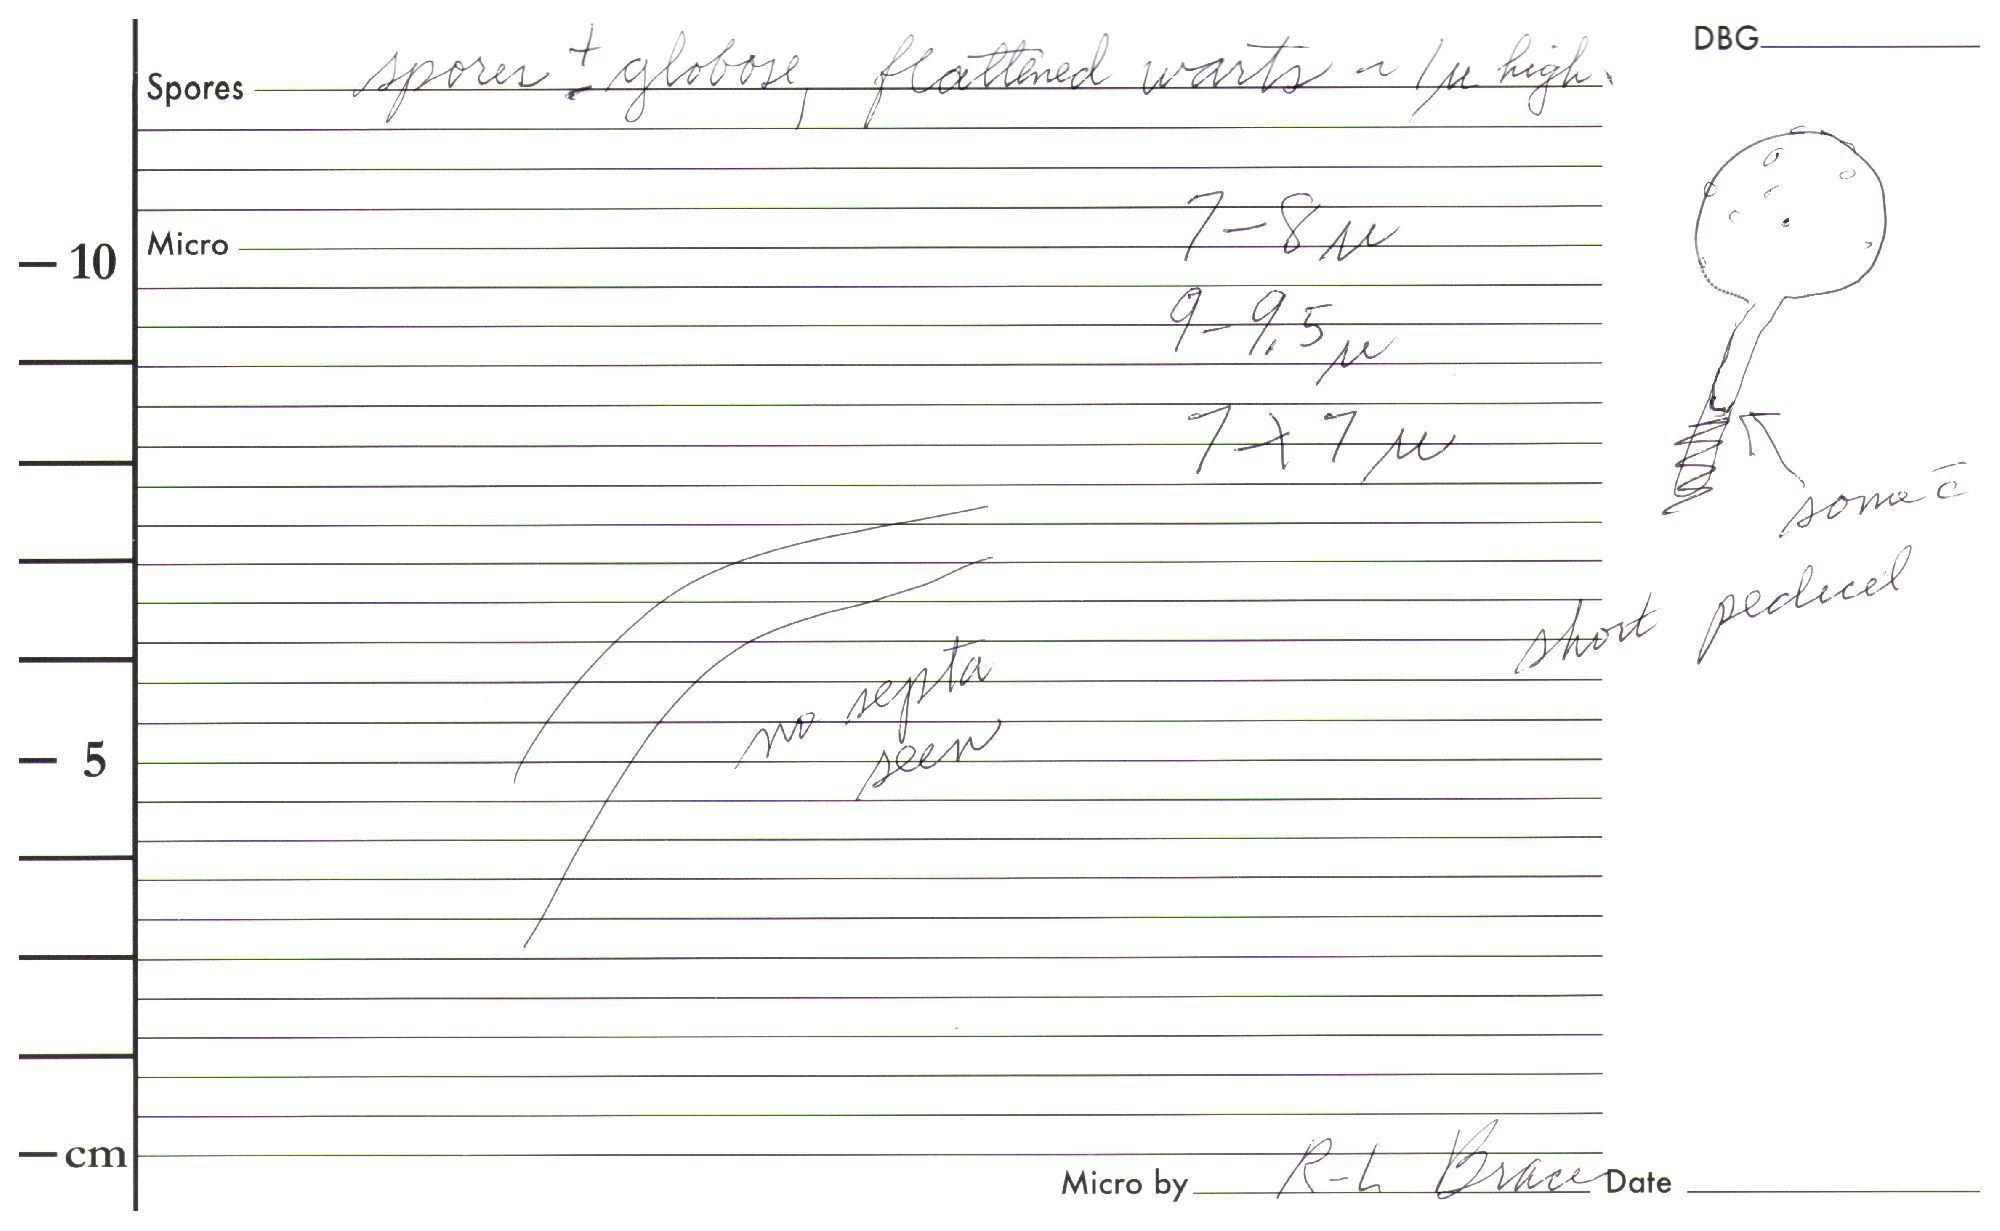 DBG
Spores spores ± globose, flattened warts ~ 1µ high.
7–8 µ
Micro
10
9–9,5 µ
7 x 7 µ
some c̄
short pedicel
no septa
seen
5
cm
Micro by R-L Brace Date